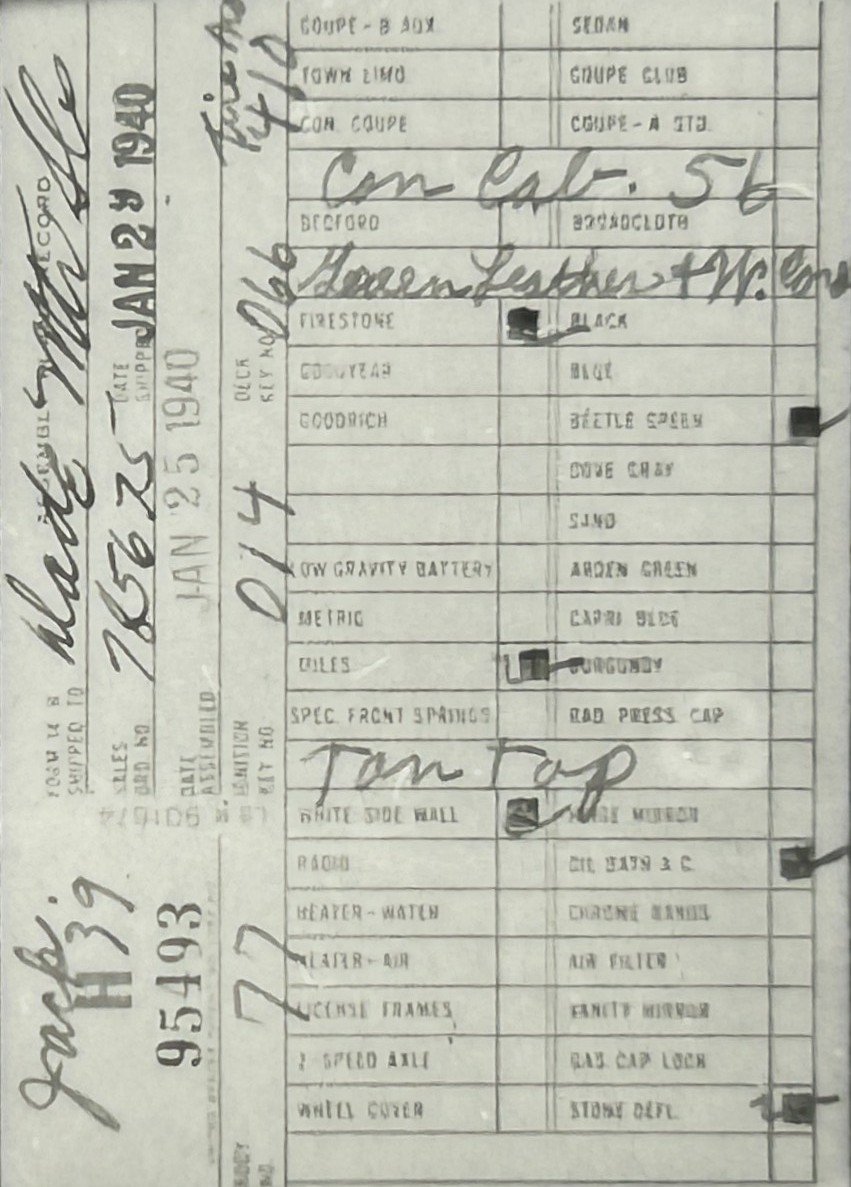 COUPE - B AUX SEDAN
TOWN LIMO COUPE CLUB
CON. COUPE COUPE - A STD.
Con Cab. 56
BEDFORD BROADCLOTH
Green Leather + W.
FIRESTONE BLACK
GOODYEAR BLUE
GOODRICH BEETLE GREEN
DOVE GRAY
SAND
LOW GRAVITY BATTERY ARDEN GREEN
METRIC CAPRI BLUE
MILES BURGUNDY
SPEC. FRONT SPRINGS RAD PRESS CAP
Tan Top
WHITE SIDE WALL MIRROR
RADIO OIL BATH A C
HEATER - WATER CHROME BANDS
HEATER - AIR AIR FILTER
LICENSE FRAMES VANITY MIRROR
2 SPEED AXLE RAD CAP LOCK
WHEEL COVER STONE DEFL.
RECORD
FORM 14 B
SHIPPED TO
SALES ORD NO
DATE SHIPPED JAN 29 1940
DATE ASSEMBLED JAN 25 1940
IGNITION KEY NO 014
DECK KEY NO 066
H 39
95493
BODY NO. 77